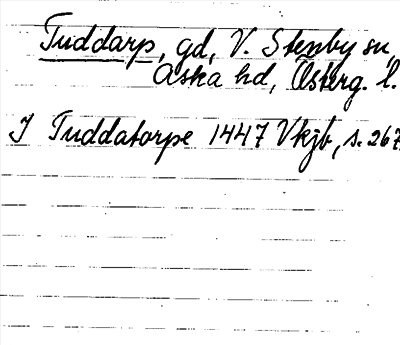 Tuddarp, gd, V. Stenby sn,
Aska hd, Österg. l.
I Tuddatorpe 1447 Vkjb, s. 267